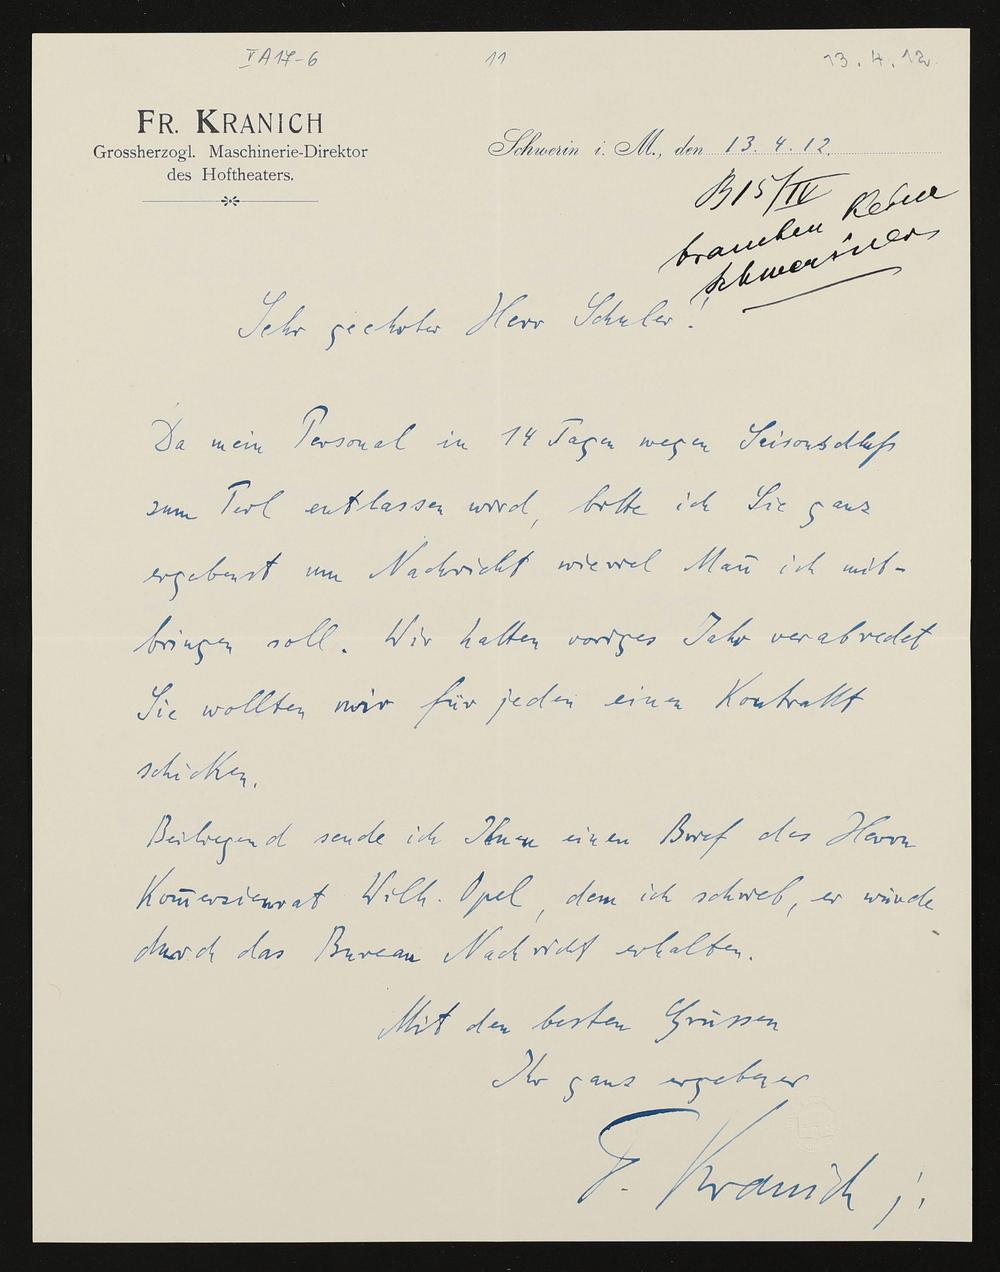 V A 17-6 11 13.4.12
FR. KRANICH
Grossherzogl. Maschinerie-Direktor
des Hoftheaters.
Schwerin i. M., den 13. 4. 12.
B15/IV
brauchen keine
Schweriner
Sehr geehrter Herr Schuler!
Da mein Personal in 14 Tagen wegen Saisonschluß
zum Teil entlassen wird, bitte ich Sie ganz
ergebenst um Nachricht wieviel Mañ ich mit-
bringen soll. Wir hatten voriges Jahr verabredet
Sie wollten mir für jeden einen Kontrakt
schicken.
Beiliegend sende ich Ihnen einen Brief des Herrn
Kom̄erzienrat Wilh. Opel, dem ich schrieb, er würde
durch das Bureau Nachricht erhalten.
Mit den besten Grüssen
Ihr ganz ergebener
F. Kranich j.